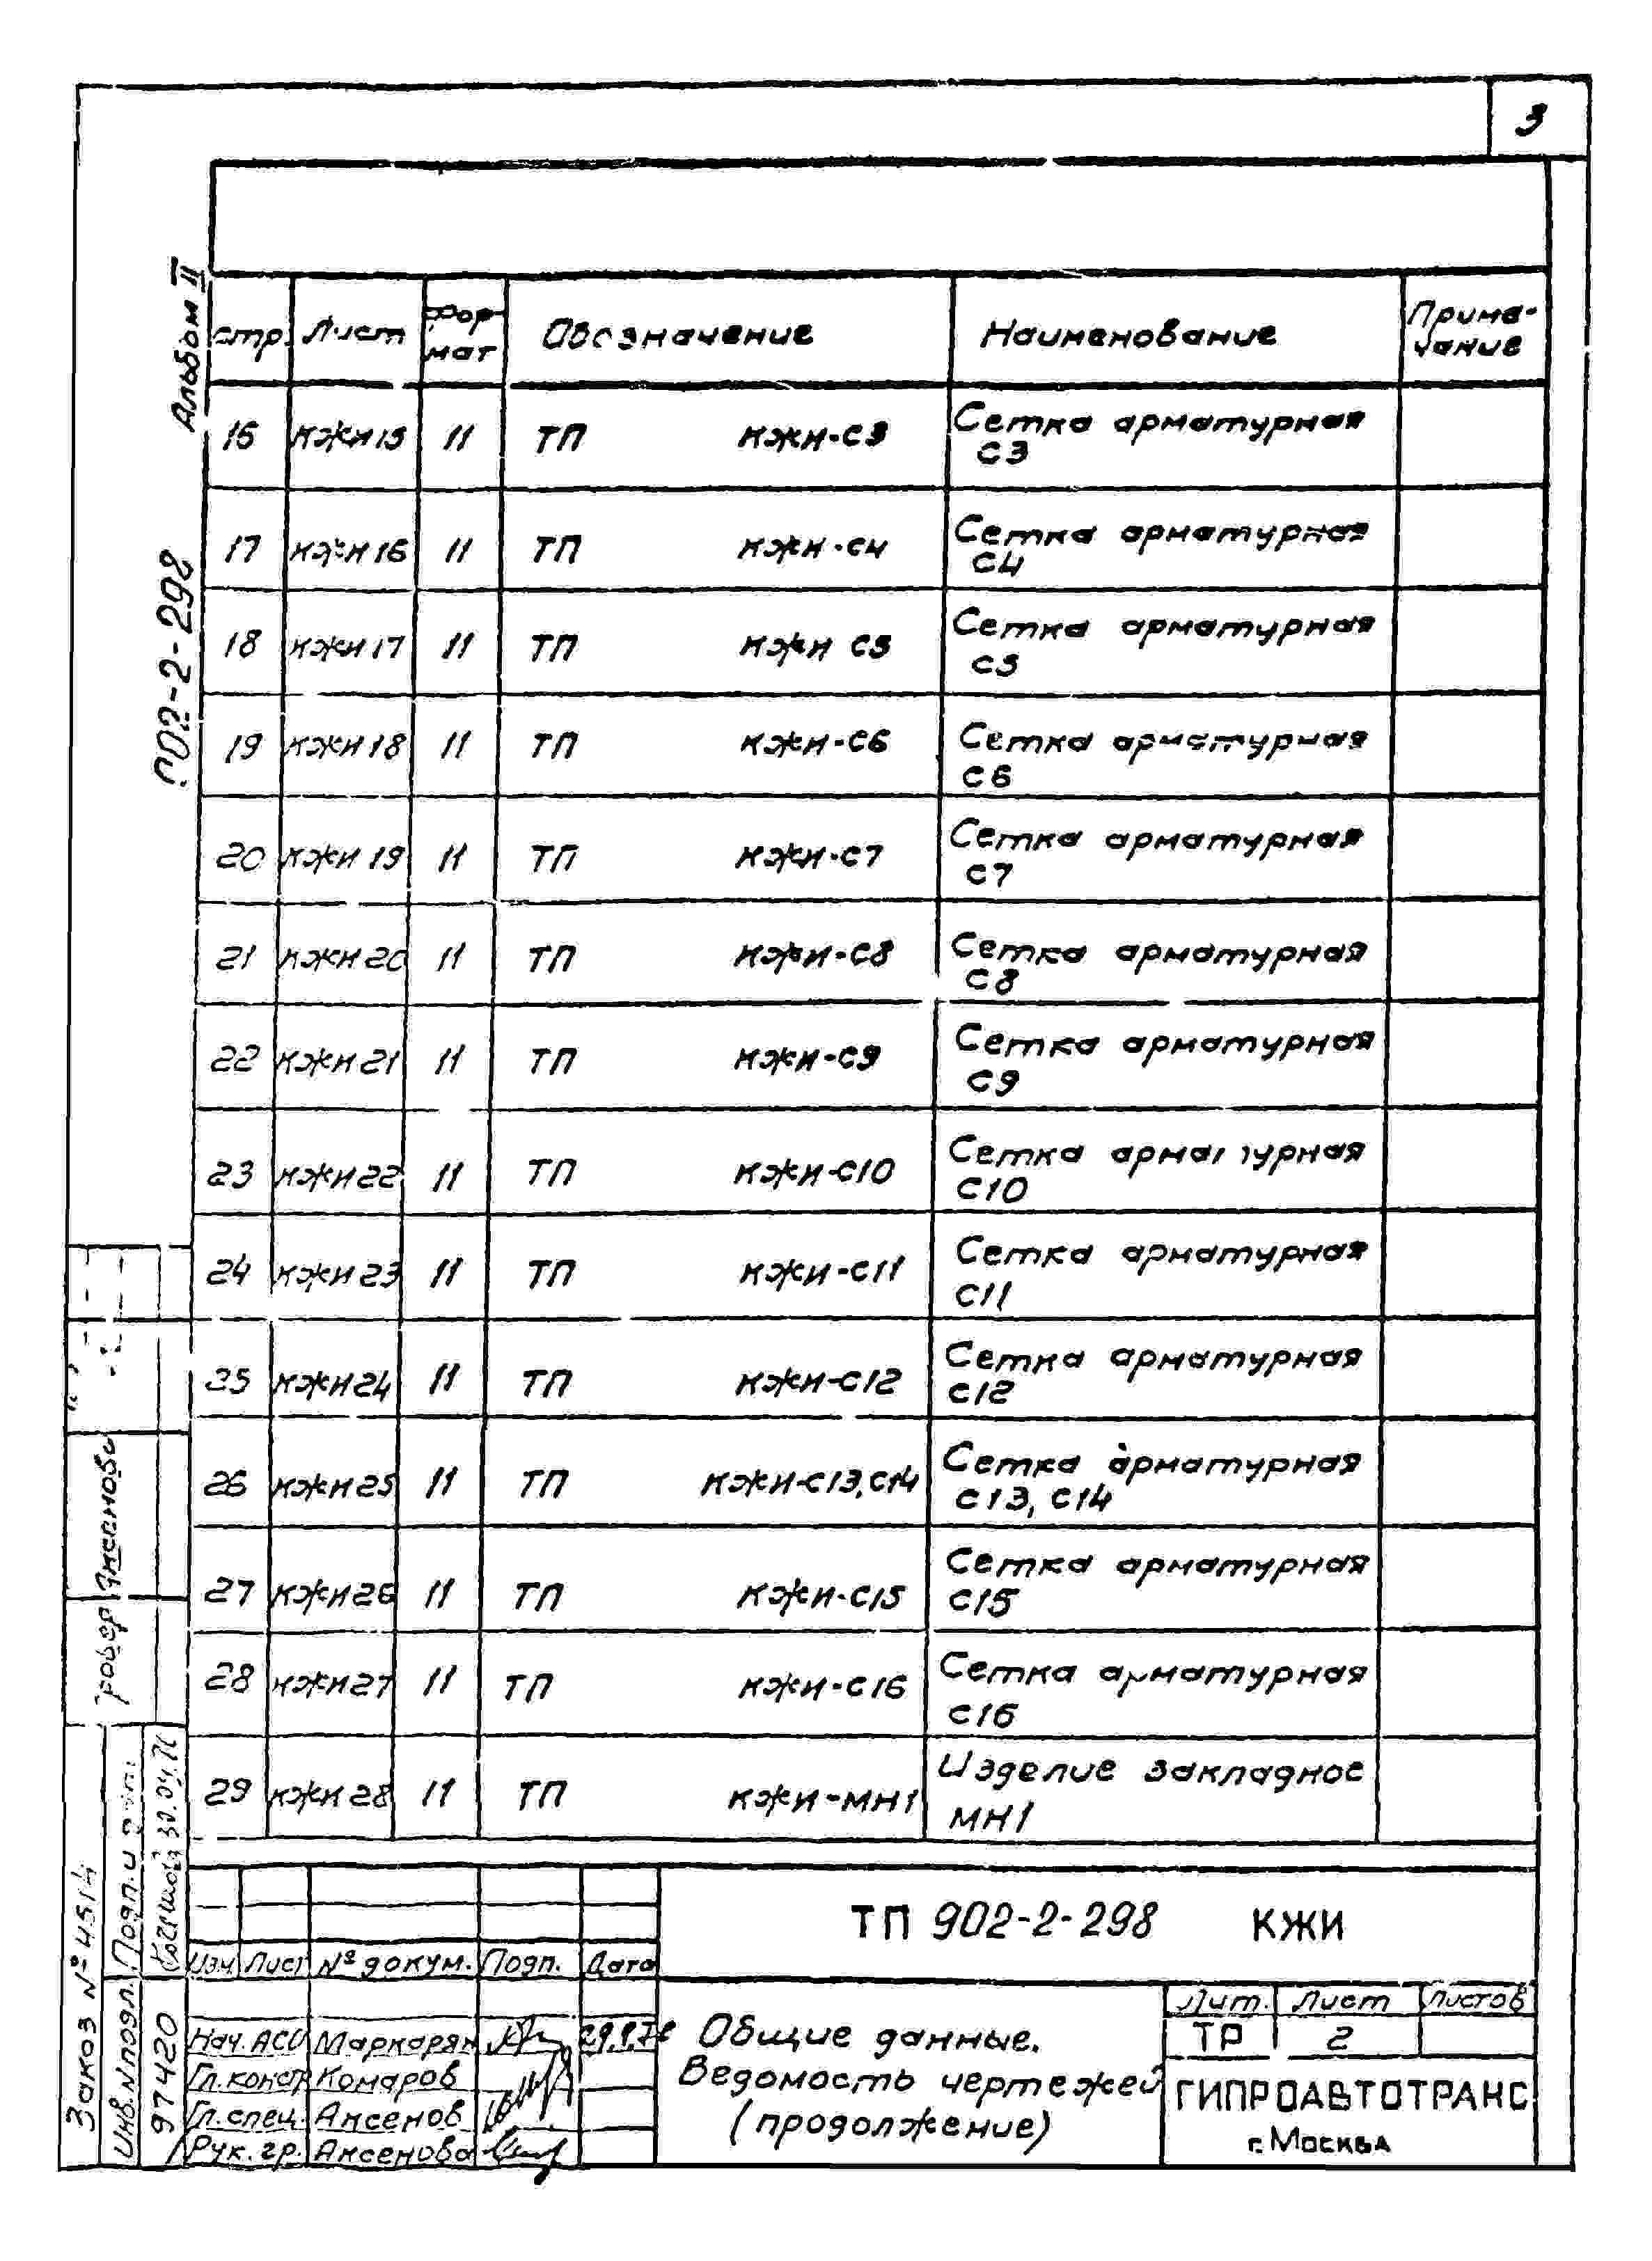 3
Альбом II
902-2-298
стр. Лист Формат Обозначение Наименование Примечание
16 КЖИ15 11 ТП КЖИ-С3 Сетка арматурная
С3
17 КЖИ16 11 ТП КЖИ-С4 Сетка арматурная
С4
18 КЖИ17 11 ТП КЖИ С5 Сетка арматурная
С5
19 КЖИ18 11 ТП КЖИ-С6 Сетка арматурная
С6
20 КЖИ19 11 ТП КЖИ-С7 Сетка арматурная
С7
21 КЖИ20 11 ТП КЖИ-С8 Сетка арматурная
С8
22 КЖИ21 11 ТП КЖИ-С9 Сетка арматурная
С9
23 КЖИ22 11 ТП КЖИ-С10 Сетка арматурная
С10
24 КЖИ23 11 ТП КЖИ-С11 Сетка арматурная
С11
25 КЖИ24 11 ТП КЖИ-С12 Сетка арматурная
С12
26 КЖИ25 11 ТП КЖИ-С13,С14 Сетка арматурная
С13, С14
27 КЖИ26 11 ТП КЖИ-С15 Сетка арматурная
С15
28 КЖИ27 11 ТП КЖИ-С16 Сетка арматурная
С16
29 КЖИ28 11 ТП КЖИ-МН1 Изделие закладное
МН1
ТП 902-2-298 КЖИ
Изм. Лист № докум. Подп. Дата
Нач. АСО Маркарян
Гл. констр Комаров
Гл. спец. Аксенов
Рук. гр. Аксенова
Общие данные.
Ведомость чертежей
(продолжение)
Лит. Лист Листов
ТР 2
ГИПРОАВТОТРАНС
г. Москва
Заказ № 4514
Инв. N подл. Подп. и
97420